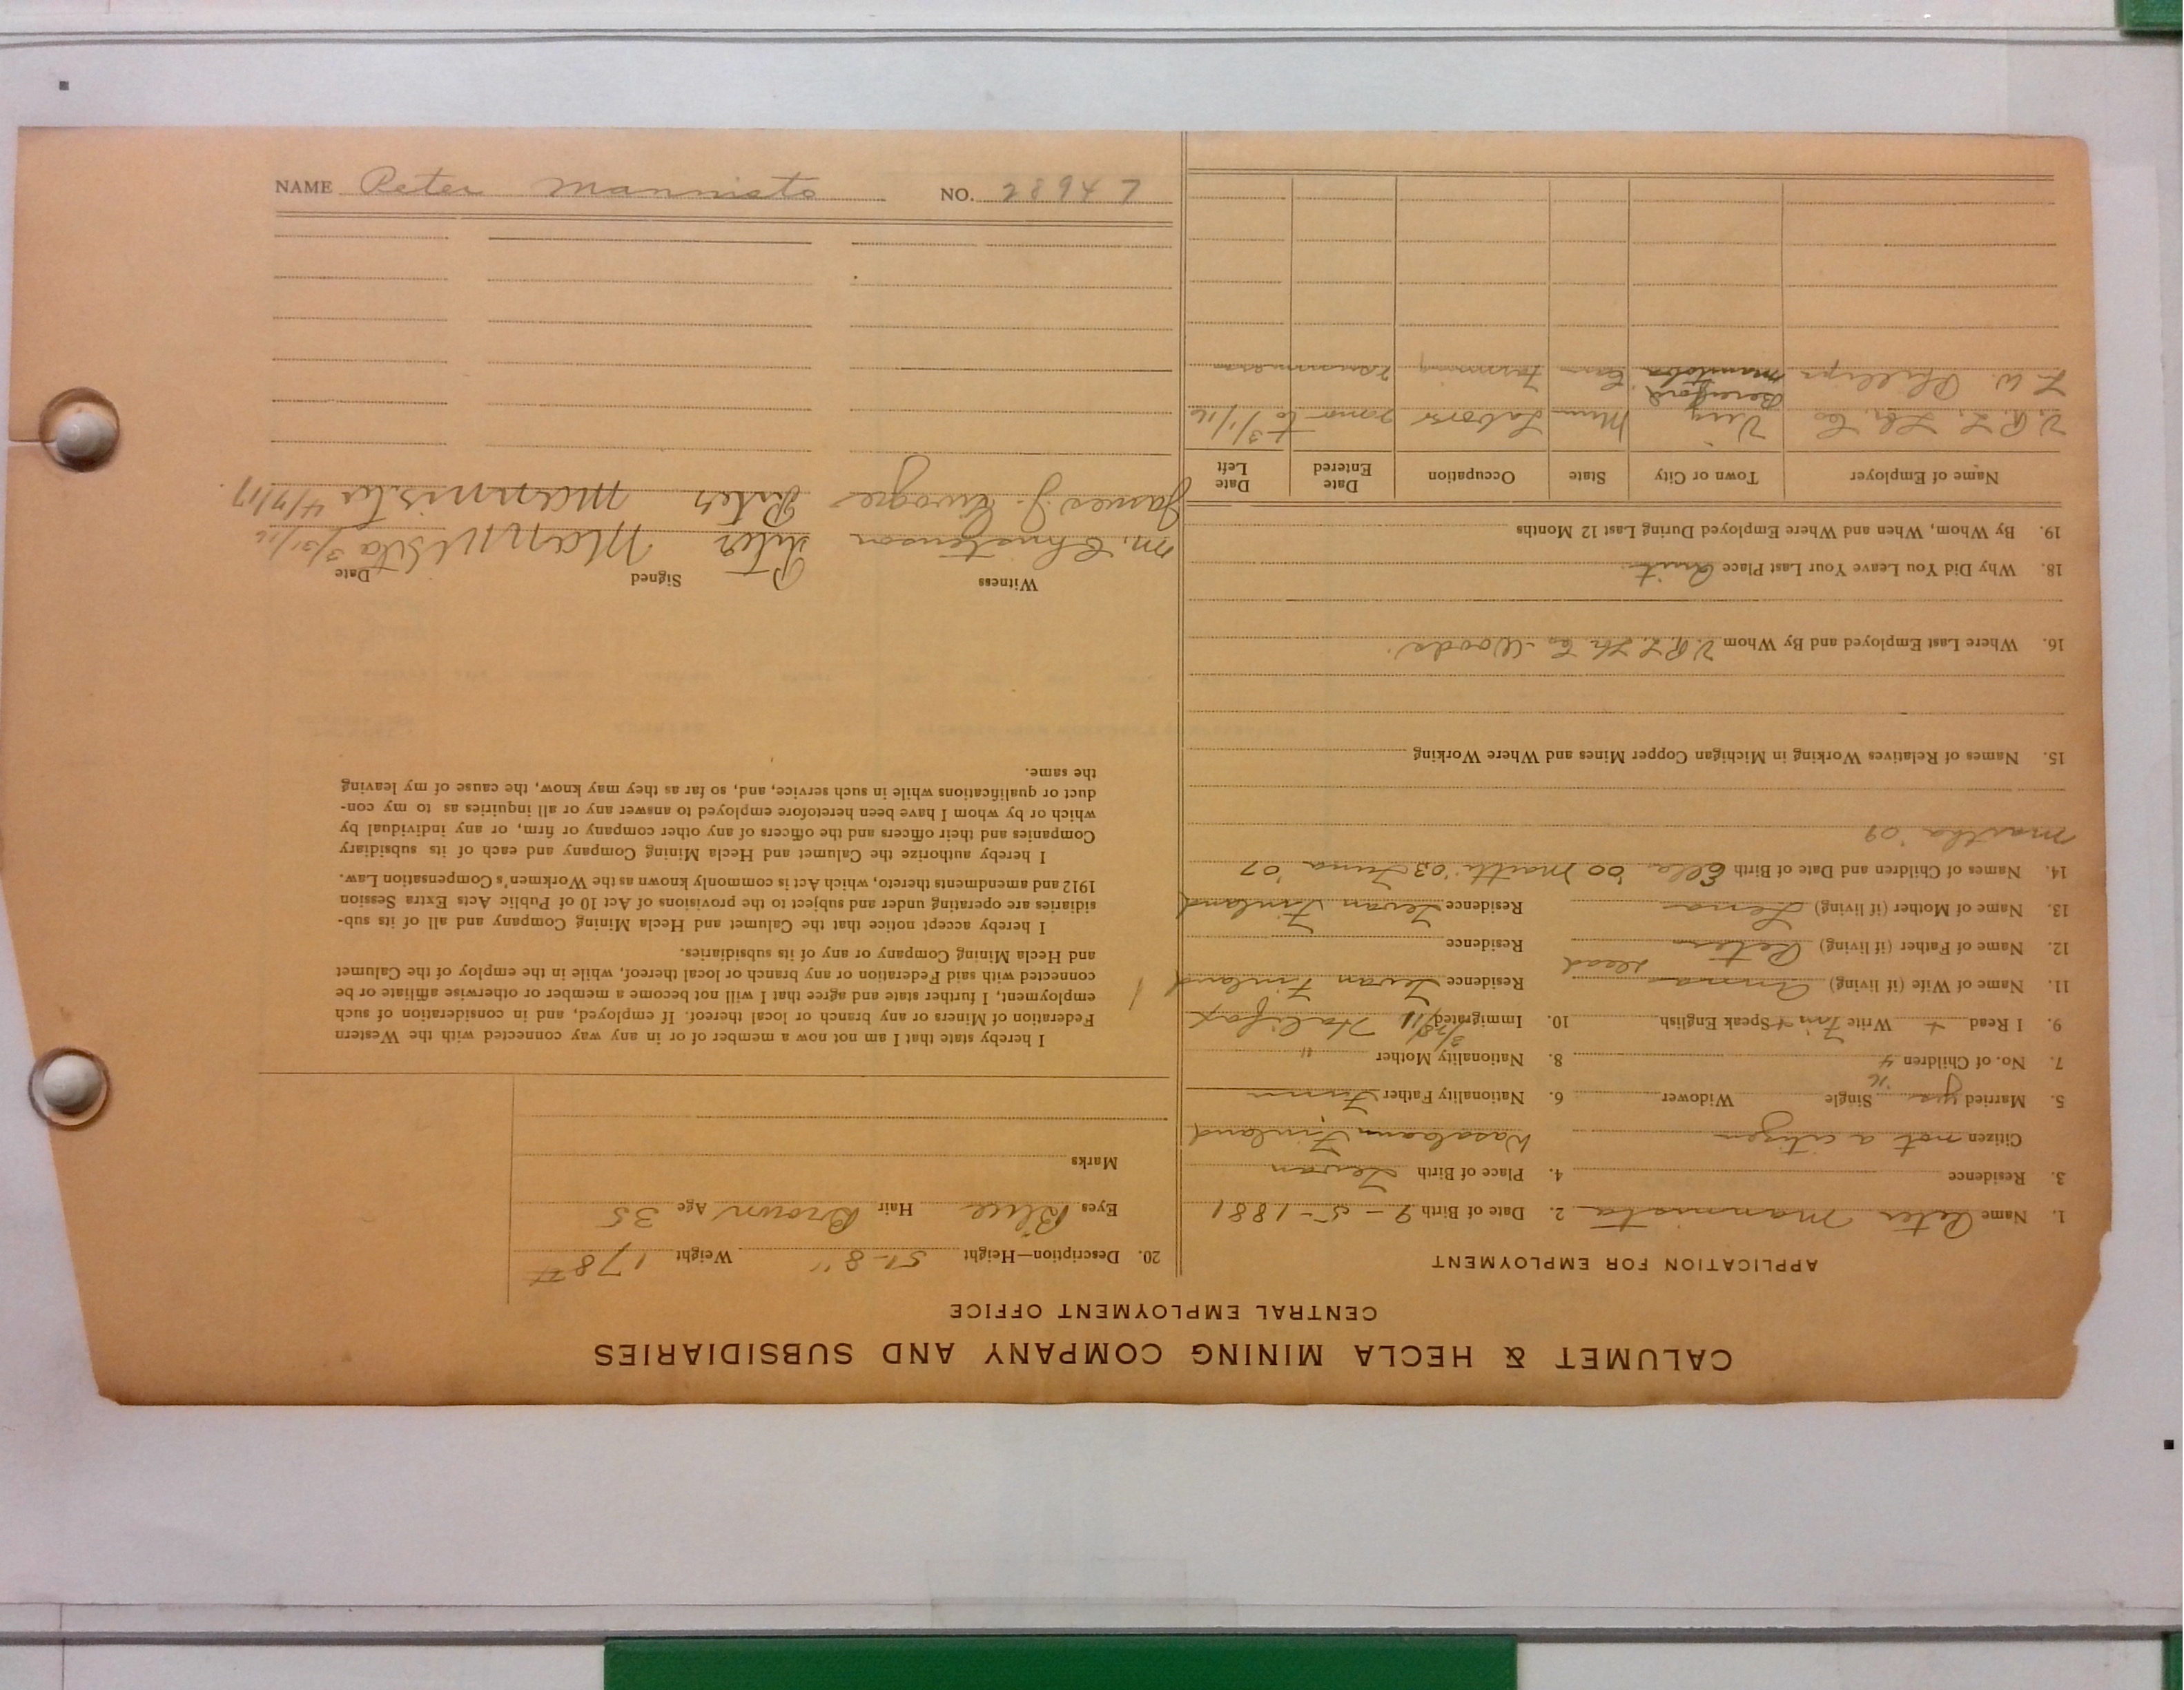 NAME Peter Mannisto NO. 28947
CALUMET & HECLA MINING COMPANY AND SUBSIDIARIES
CENTRAL EMPLOYMENT OFFICE
APPLICATION FOR EMPLOYMENT
1. Name Peter Mannisto 2. Date of Birth 9-5-1881
3. Residence 4. Place of Birth
Citizen not a citizen Finland
5. Married yes Single Widower 6. Nationality Father Finn
7. No. of Children 4 8. Nationality Mother "
9. I Read + Write Finn + Speak English 10. Immigrated Halifax
11. Name of Wife (if living) Anna Residence Finland
12. Name of Father (if living) Peter dead Residence
13. Name of Mother (if living) Lena Residence Finland
14. Names of Children and Date of Birth Ella '00 '03 '07
Martha '09
15. Names of Relatives Working in Michigan Copper Mines and Where Working
16. Where Last Employed and By Whom V.R.L. Co. Woods.
18. Why Did You Leave Your Last Place Quit
19. By Whom, When and Where Employed During Last 12 Months
Name of Employer Town or City State Occupation Date Entered Date Left
V. R. L. Co Minn Labor 2 mos to 3/1/16
Phillips Manitoba Can Farming
20. Description—Height 5'-8" Weight 178#
Eyes Blue Hair Brown Age 35
Marks
I hereby state that I am not now a member of or in any way connected with the Western
Federation of Miners or any branch or local thereof. If employed, and in consideration of such
employment, I further state and agree that I will not become a member or otherwise affiliate or be
connected with said Federation or any branch or local thereof, while in the employ of the Calumet
and Hecla Mining Company or any of its subsidiaries.
I hereby accept notice that the Calumet and Hecla Mining Company and all of its sub-
sidiaries are operating under and subject to the provisions of Act 10 of Public Acts Extra Session
1912 and amendments thereto, which Act is commonly known as the Workmen's Compensation Law.
I hereby authorize the Calumet and Hecla Mining Company and each of its subsidiary
Companies and their officers and the officers of any other company or firm, or any individual by
which or by whom I have been heretofore employed to answer any or all inquiries as to my con-
duct or qualifications while in such service, and, so far as they may know, the cause of my leaving
the same.
Witness Signed Date
M. Christenson Peter Mannista 3/31/16
James J. Peter Mannisto 4/7/17